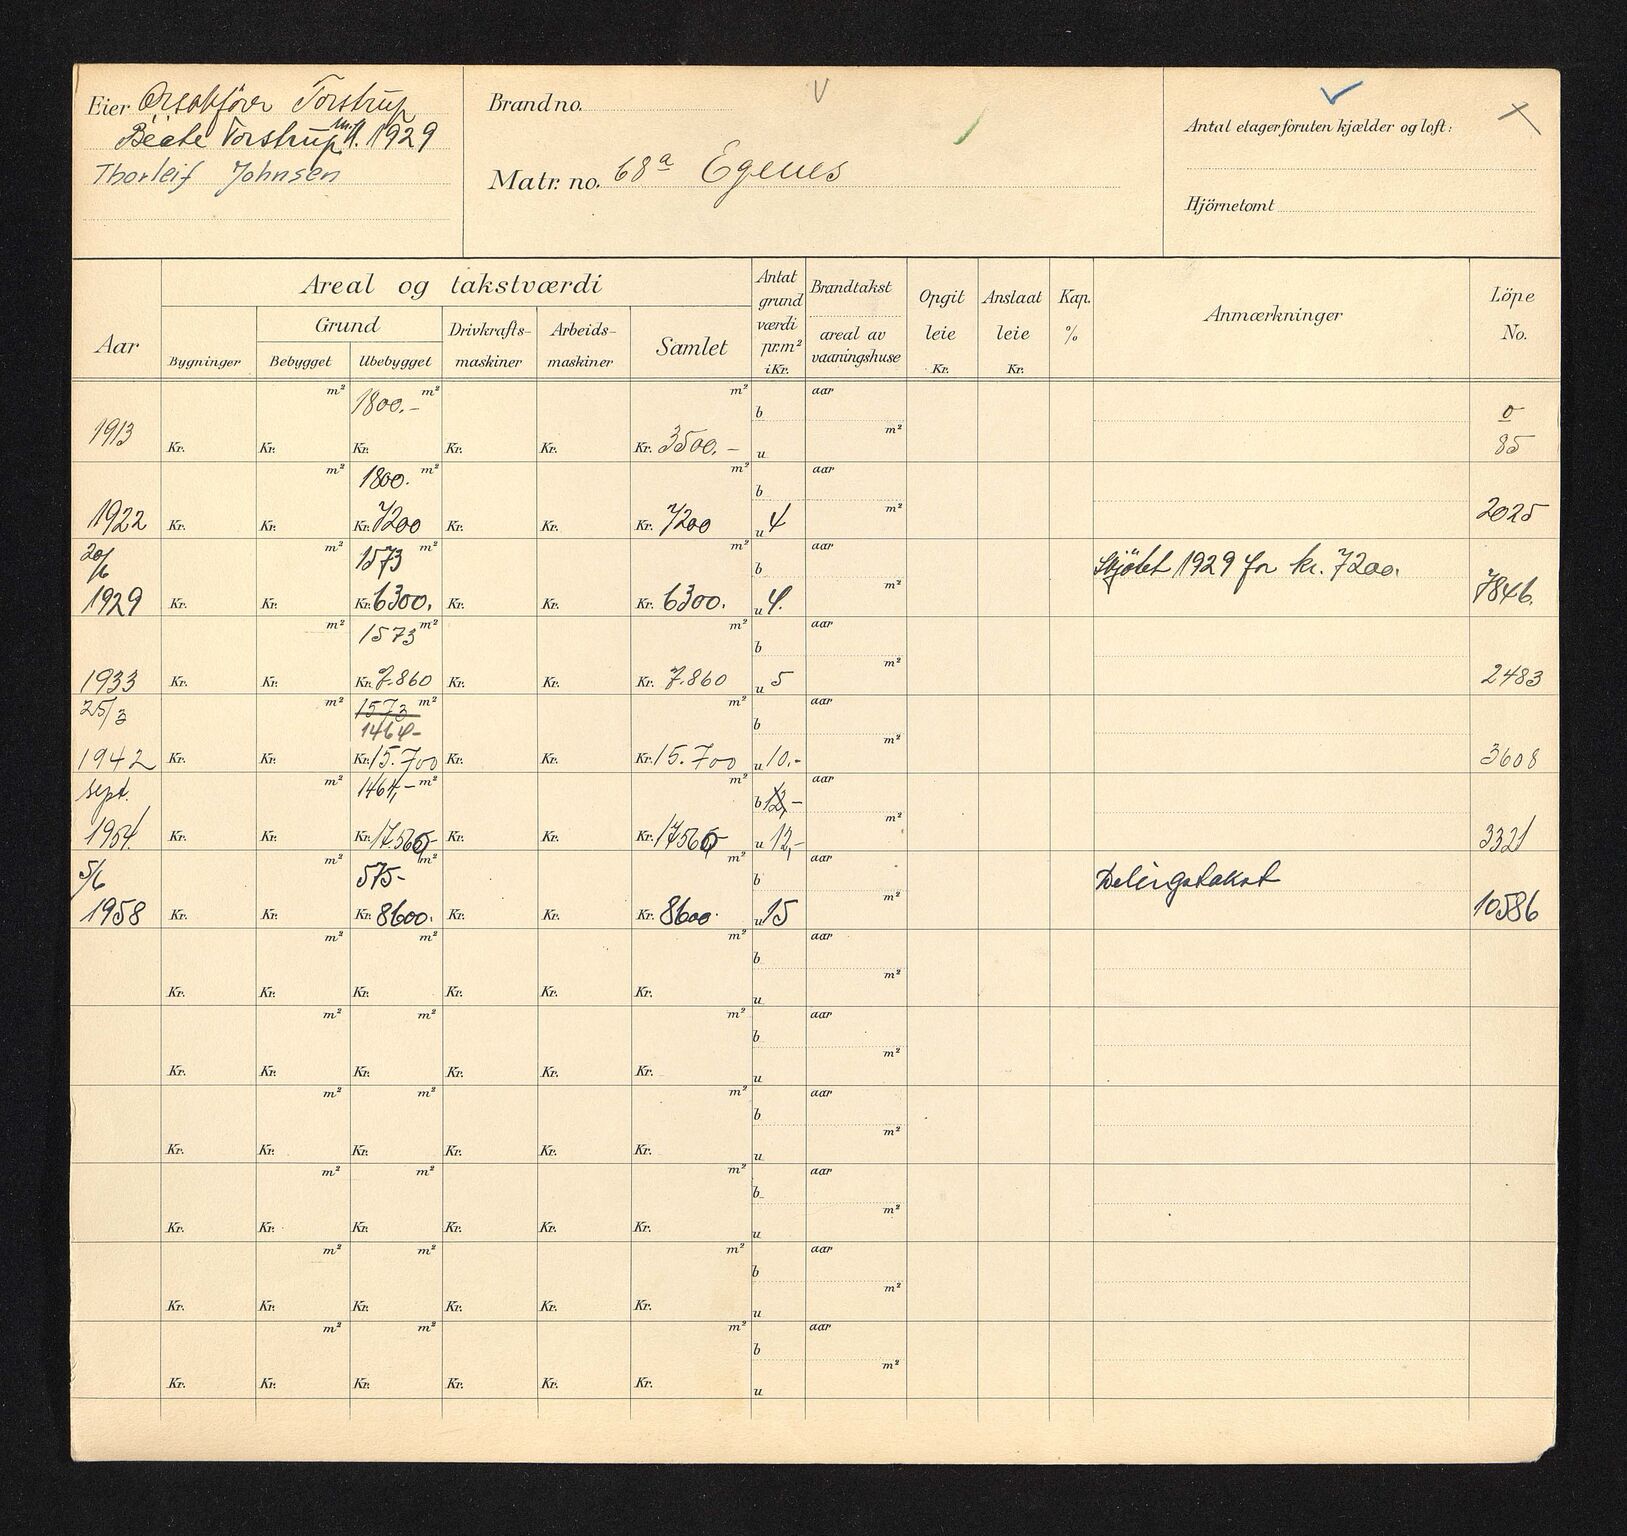 Eier Torstrup
Torstrup 1929
Thorleif Johnsen
Brand no.
V
Matr. no. 68a Egenes
Antal etager foruten kjælder og loft:
Hjörnetomt
Aar
Areal og takstværdi
Bygninger
Grund
Bebygget
Ubebygget
Drivkrafts-maskiner
Arbeids-maskiner
Samlet
Antat grund værdi pr. m² i Kr.
Brandtakst
areal av vaaningshuse
Opgit leie Kr.
Anslaat leie Kr.
Kap. %
Anmærkninger
Löpe No.
m² 1800.- m² m² b aar 0
1913 Kr. Kr. Kr. Kr. Kr. Kr. 3500.- u m² 85
m² 1800. m² m² b aar
1922 Kr. Kr. Kr. 7200 Kr. Kr. Kr. 7200 u 4 m² 2025
20/6 m² 1573 m² m² b aar Skjötet 1929 for kr. 7200.
1929 Kr. Kr. Kr. 6300. Kr. Kr. Kr. 6300. u 4. m² 7846.
m² 1573 m² m² b aar
1933 Kr. Kr. Kr. 7.860 Kr. Kr. Kr. 7.860 u 5 m² 2483
25/3 m² 1573 m² m² b aar
1464-
1942 Kr. Kr. Kr. 15.700 Kr. Kr. Kr. 15.700 u 10.- m² 3608
sept. m² 1464,- m² m² b 12,- aar
1954 Kr. Kr. Kr. Kr. Kr. Kr. u 12,- m² 3321
5/6 m² 575- m² m² b aar Delingstakst
1958 Kr. Kr. Kr. 8600. Kr. Kr. Kr. 8600. u 15 m² 10586
m² m² m² b aar
Kr. Kr. Kr. Kr. Kr. Kr. u m²
m² m² m² b aar
Kr. Kr. Kr. Kr. Kr. Kr. u m²
m² m² m² b aar
Kr. Kr. Kr. Kr. Kr. Kr. u m²
m² m² m² b aar
Kr. Kr. Kr. Kr. Kr. Kr. u m²
m² m² m² b aar
Kr. Kr. Kr. Kr. Kr. Kr. u m²
m² m² m² b aar
Kr. Kr. Kr. Kr. Kr. Kr. u m²